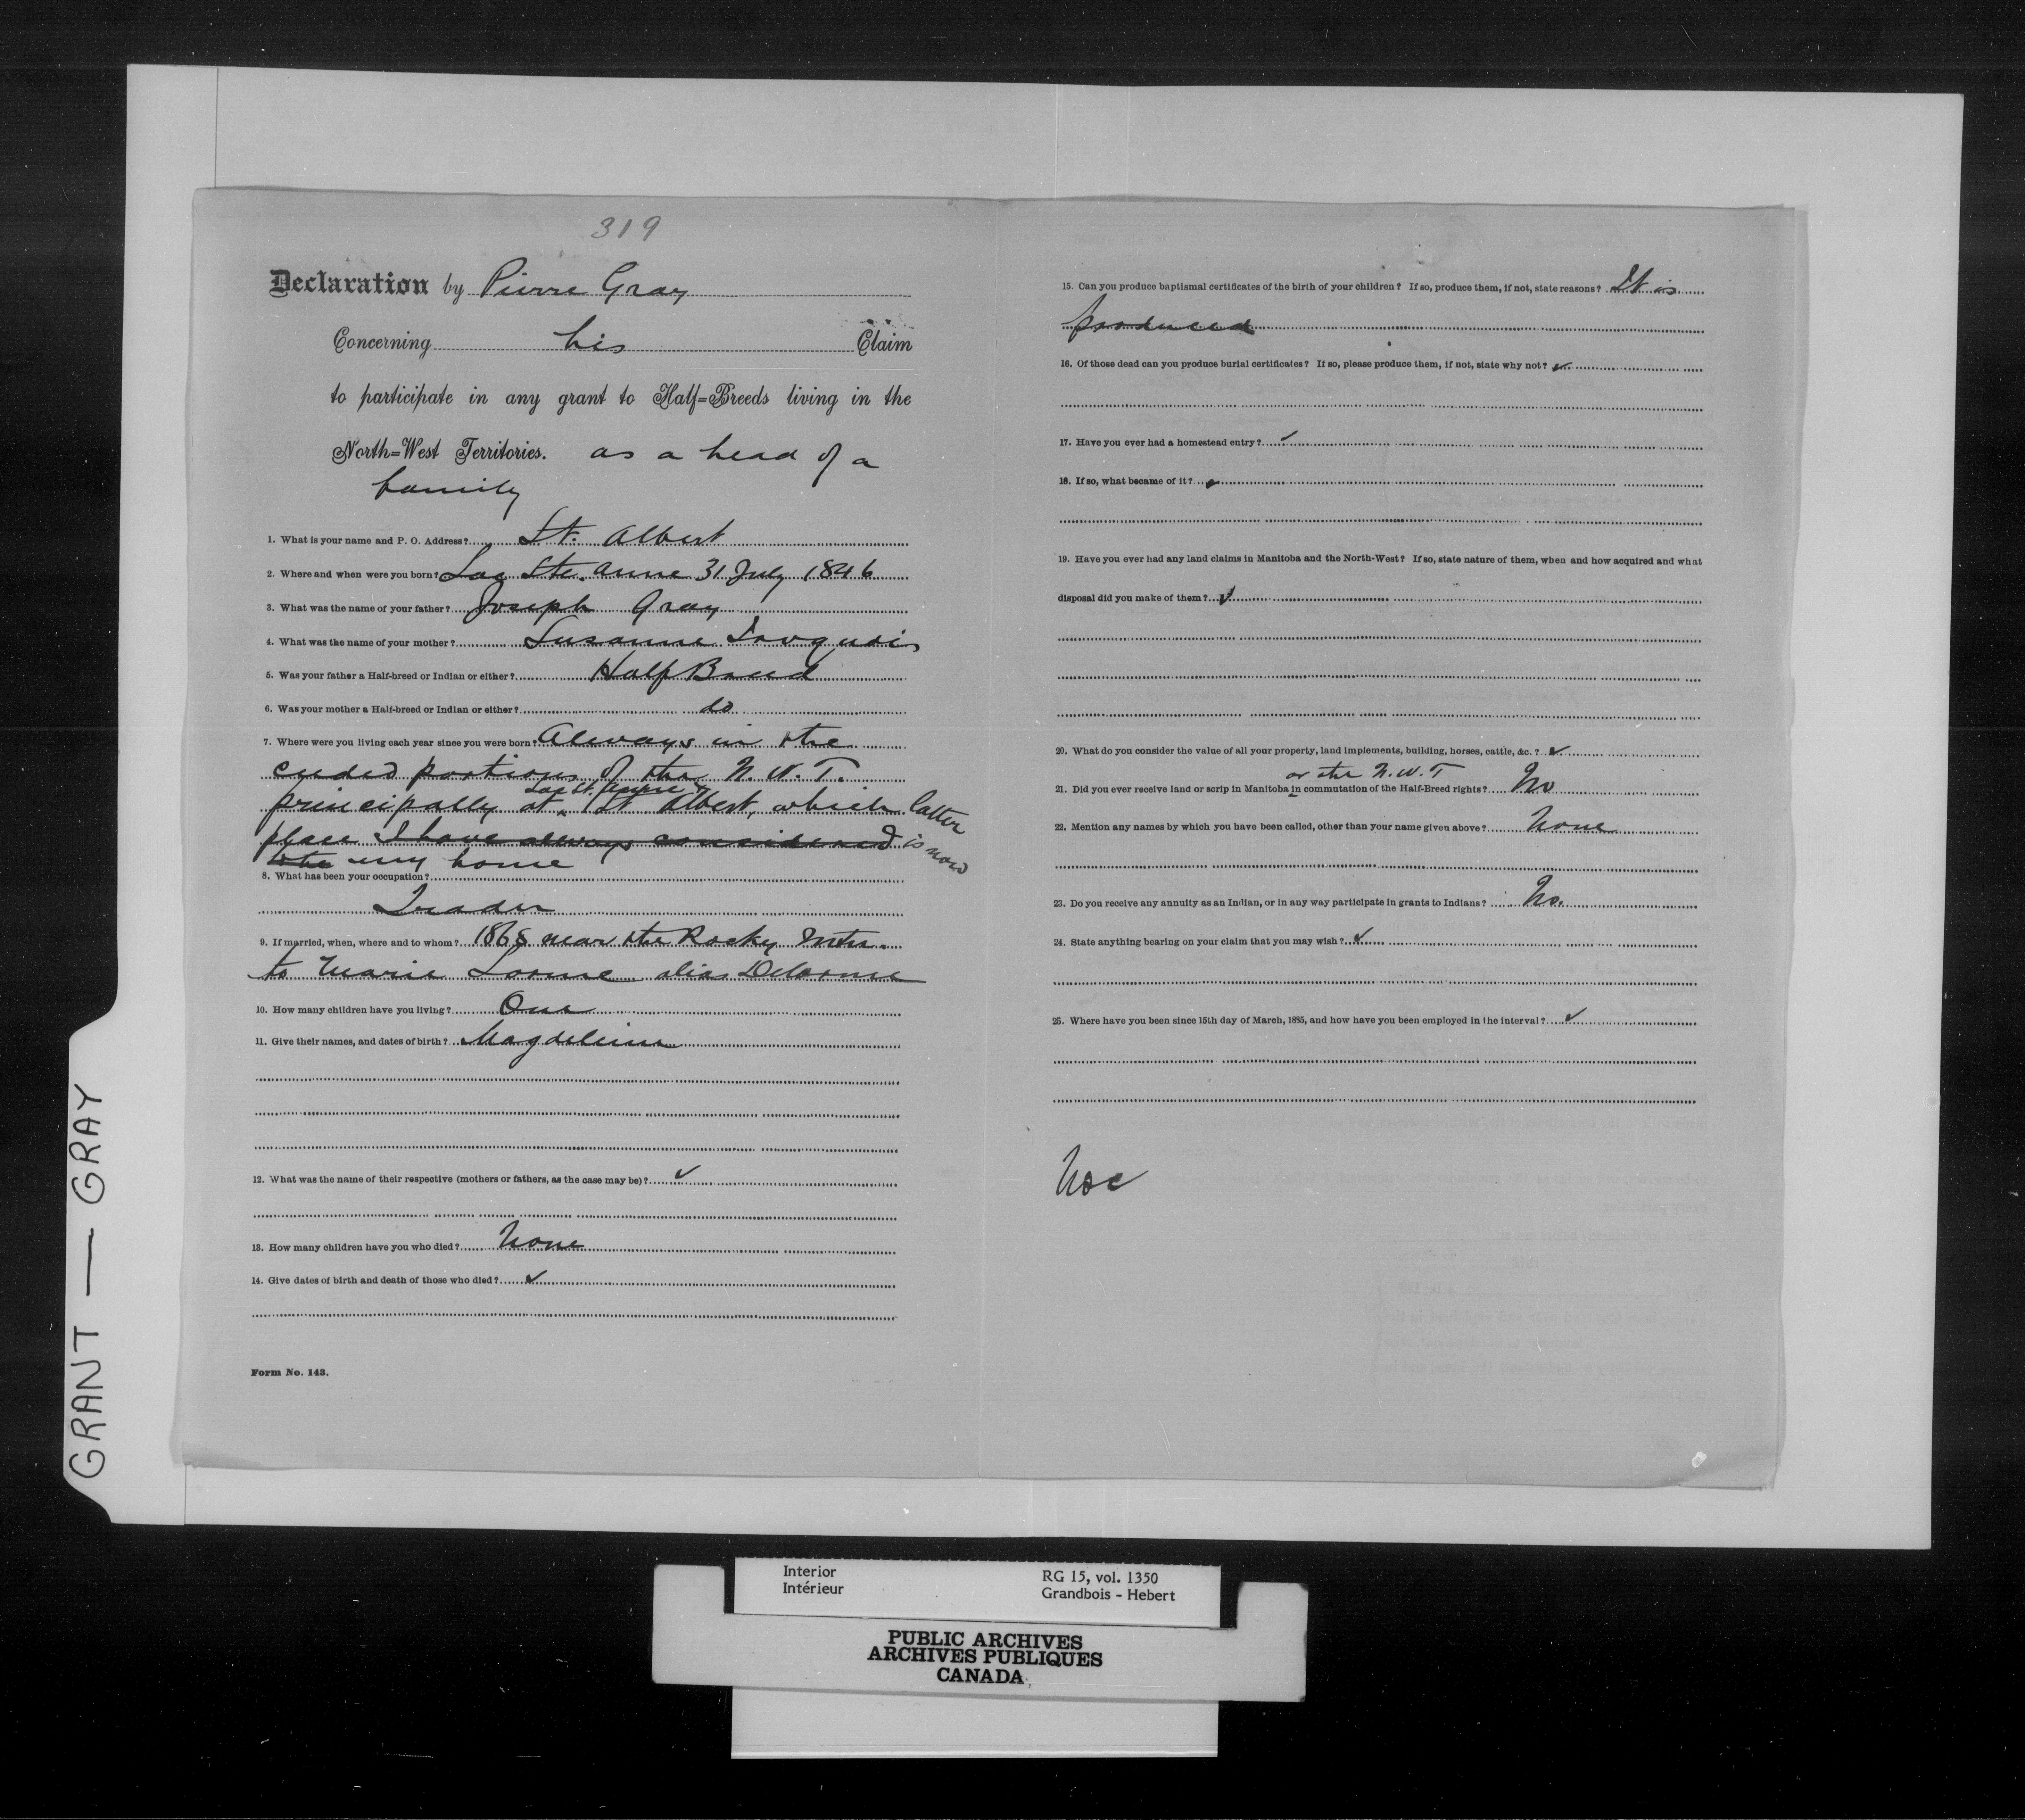 319
Declaration by Pierre Gray
Concerning his Claim
to participate in any grant to Half=Breeds living in the
North=West Territories. as a head of a
family
1. What is your name and P. O. Address? St. Albert
2. Where and when were you born? Lac Ste. Anne 31 July 1846
3. What was the name of your father? Joseph Gray
4. What was the name of your mother? Susanne Iroquois
5. Was your father a Half-breed or Indian or either? Half Breed
6. Was your mother a Half-breed or Indian or either? do
7. Where were you living each year since you were born? Always in the
ceded portions of the N. W. T.
Lac St. Anne &
principally at St Albert, which latter
place I have always considered is now
the my home
8. What has been your occupation?
Trader
9. If married, when, where and to whom? 1868 near the Rocky Mtn.
to Marie Lorme alias Delorme
10. How many children have you living? One
11. Give their names, and dates of birth? Magdeleine
12. What was the name of their respective (mothers or fathers, as the case may be)? ✓
13. How many children have you who died? None
14. Give dates of birth and death of those who died? ✓
Form No. 143.
15. Can you produce baptismal certificates of the birth of your children? If so, produce them, if not, state reasons? It is
produced
16. Of those dead can you produce burial certificates? If so, please produce them, if not, state why not? ✓
17. Have you ever had a homestead entry? ✓
18. If so, what became of it? ✓
19. Have you ever had any land claims in Manitoba and the North-West? If so, state nature of them, when and how acquired and what
disposal did you make of them? ✓
20. What do you consider the value of all your property, land implements, building, horses, cattle, &c.? ✓
or the N.W.T
21. Did you ever receive land or scrip in Manitoba in commutation of the Half-Breed rights? No
22. Mention any names by which you have been called, other than your name given above? None
23. Do you receive any annuity as an Indian, or in any way participate in grants to Indians? No.
24. State anything bearing on your claim that you may wish? ✓
25. Where have you been since 15th day of March, 1885, and how have you been employed in the interval? ✓
GRANT — GRAY
Interior
Intérieur
RG 15, vol. 1350
Grandbois - Hebert
PUBLIC ARCHIVES
ARCHIVES PUBLIQUES
CANADA